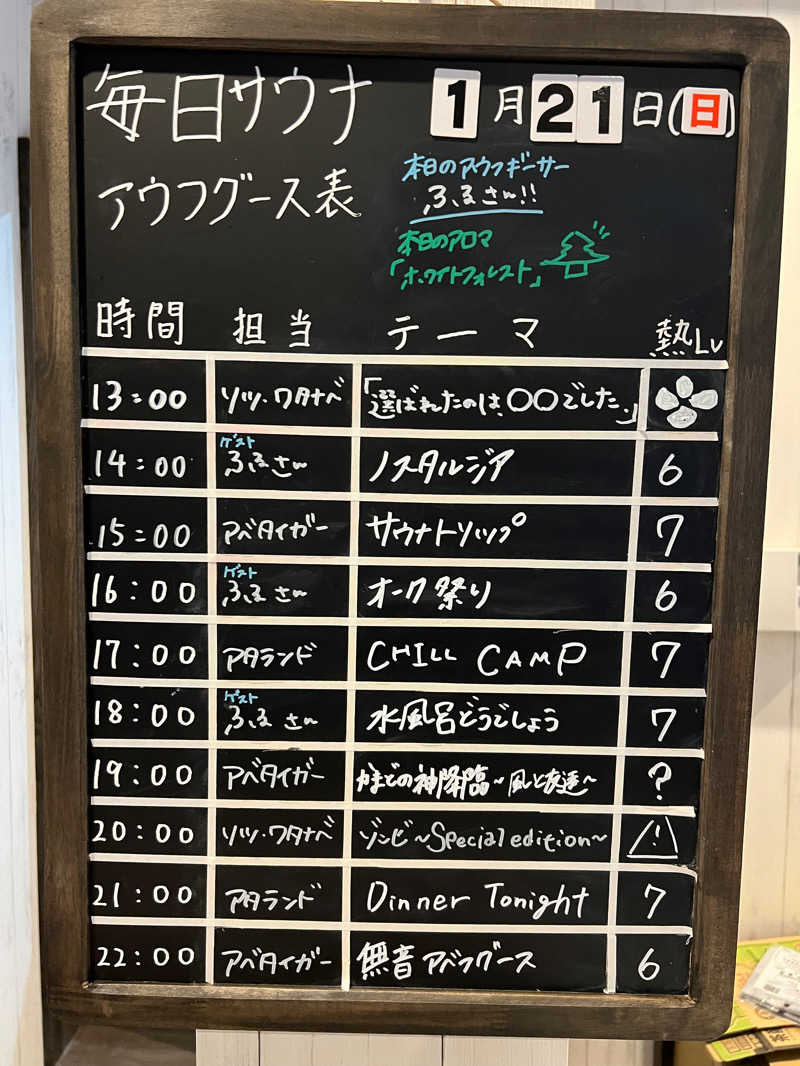 毎日サウナ 1月21日(日)
アウフグース表
本日のアウフギーサー
ふるさん!!
本日のアロマ
「ホワイトフォレスト」
時間 担当 テーマ 熱Lv
13:00 ソツ・ワタナベ 「選ばれたのは、〇〇でした。」
14:00 ゲスト ふるさん ノスタルジア 6
15:00 アベタイガー サウナトリップ 7
16:00 ゲスト ふるさん オーク祭り 6
17:00 アタランド CHILL CAMP 7
18:00 ゲスト ふるさん 水風呂どうでしょう 7
19:00 アベタイガー かまどの神降臨~風と友達~ ?
20:00 ソツ・ワタナベ ゾンビ~Special edition~ !
21:00 アタランド Dinner Tonight 7
22:00 アベタイガー 無音アベフグース 6